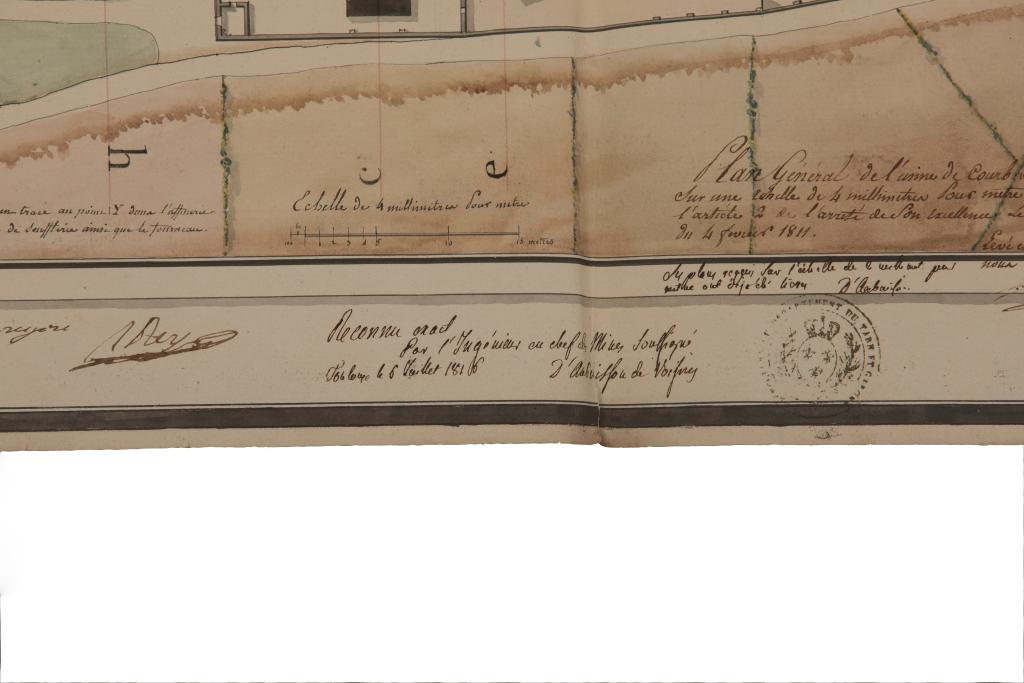 h
c
e
trace au point Y dans l'affinerie
de soufflerie ainsi que le fourneau.
Echelle de 4 millimitres Pour metre
5 10 15 metres
Plan Général de l'usine de
Sur une échelle de 4 millimitres Pour metre
l'article 2 de l'arreté de Son Excellence
du 4 fevrier 1811.
Levé
nous
les plans exigés Sur l'échelle de 2 pour
metre ont déjà été livrés D'Aubuisson
Reconnu exact
Par l'Ingénieur en chef des Mines Soussigné
Toulouse le 5 Juillet 1816 D'Aubuisson de Voisins
DEPARTEMENT DU TARN ET GARONNE